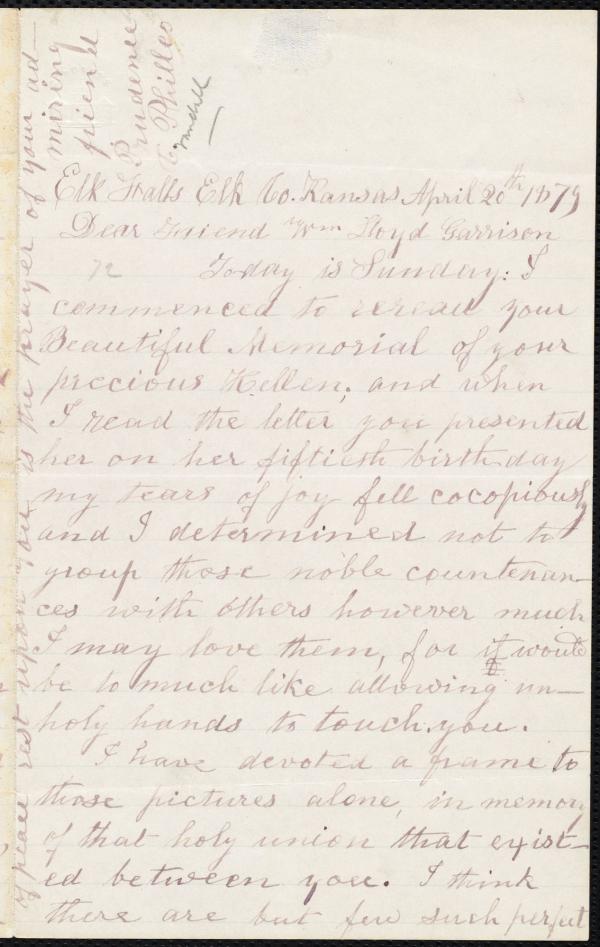 Elk Falls Elk Co. Kansas April 20th 1879
Dear Friend Wm Lloyd Garrison
72 Today is Sunday: I
commenced to reread your
Beautiful Memorial of your
precious Hellen; and when
I read the letter you presented
her on her fiftieth birthday
my tears of joy fell cocopiously
and I determined not to
group those noble countenan-
ces with others however much
I may love them, for it would
be to much like allowing un-
holy hands to touch you.
I have devoted a frame to
those pictures alone, in memory
of that holy union that exist-
ed between you. I think
there are but few such perfect
of peace rest upon you is the prayer of your ad-
miring
friend
Prudence
C. Philleo
Crandall